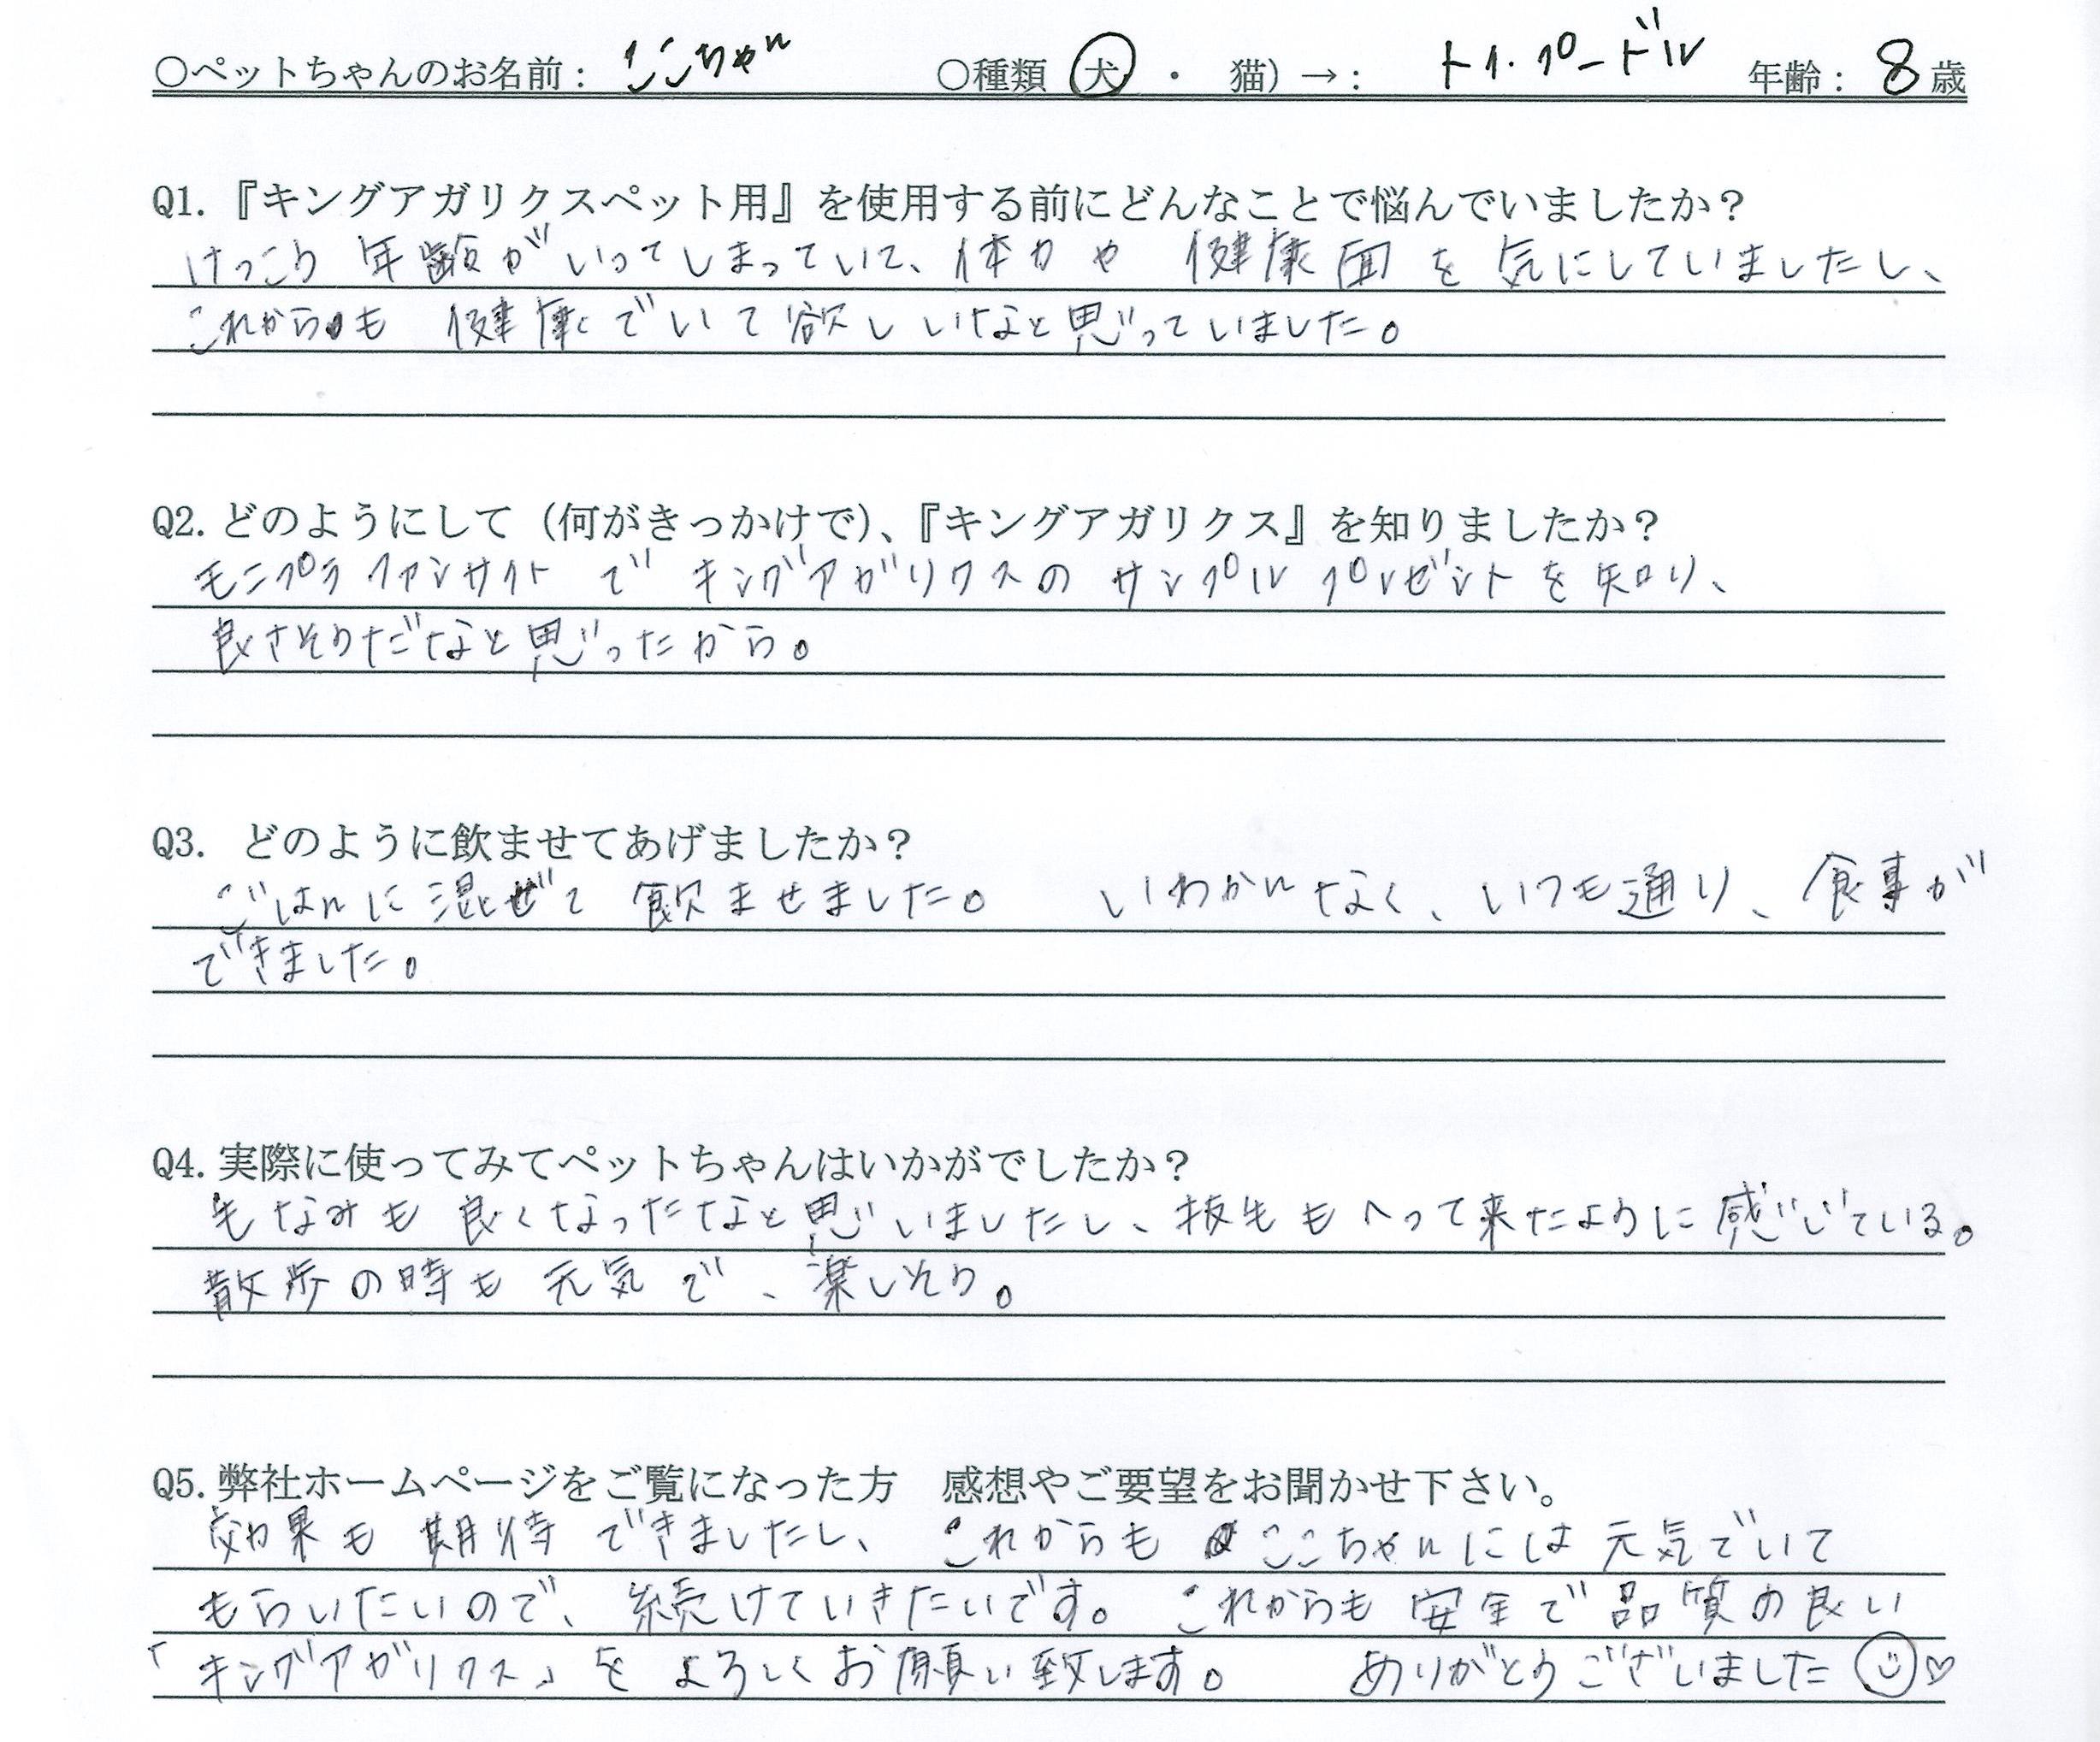 ○ペットちゃんのお名前： ここちゃん ○種類 犬 ・ 猫）→： トイ・プードル 年齢： 8 歳
Q1.『キングアガリクスペット用』を使用する前にどんなことで悩んでいましたか？
けっこう 年齢がいってしまっていて、体力や 健康面を気にしていましたし、
これからも 健康でいて欲しいなと思っていました。
Q2.どのようにして（何がきっかけで）、『キングアガリクス』を知りましたか？
モニプラファンサイトで キングアガリクスの サンプルプレゼントを知り、
良さそうだなと思ったから。
Q3. どのように飲ませてあげましたか？
ごはんに混ぜて 飲ませました。 いわかんなく、いつも通り、食事が
できました。
Q4.実際に使ってみてペットちゃんはいかがでしたか？
毛なみも良くなったなと思いましたし、抜毛もへって来たように感じている。
散歩の時も元気で、楽しそう。
Q5.弊社ホームページをご覧になった方 感想やご要望をお聞かせ下さい。
効果も期待できましたし、これからも ここちゃんには元気でいて
もらいたいので、続けていきたいです。これからも安全で品質の良い
「キングアガリクス」を よろしくお願い致します。 ありがとうございました ☺♡